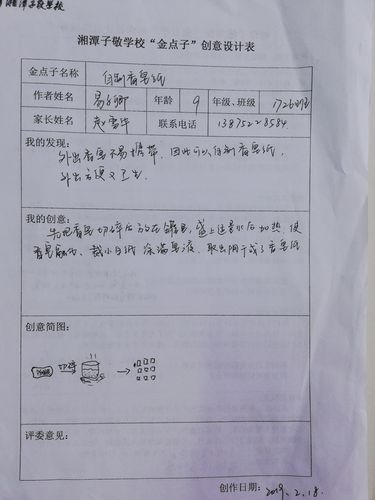 湘潭子敬学校
湘潭子敬学校“金点子”创意设计表
金点子名称 自制香皂纸
作者姓名 易 卿 年龄 9 年级、班级 1726班
家长姓名 赵雪华 联系电话 13875228584
我的发现：
外出香皂不易携带，因此可以自制香皂纸，
外出方便又卫生.
我的创意：
先把香皂切碎后放在罐里，盛上适量水后加热，使
香皂融化、裁小白纸 涂满皂液、取出阴干成了香皂纸
创意简图：
切碎
评委意见：
创作日期：2019.2.18.